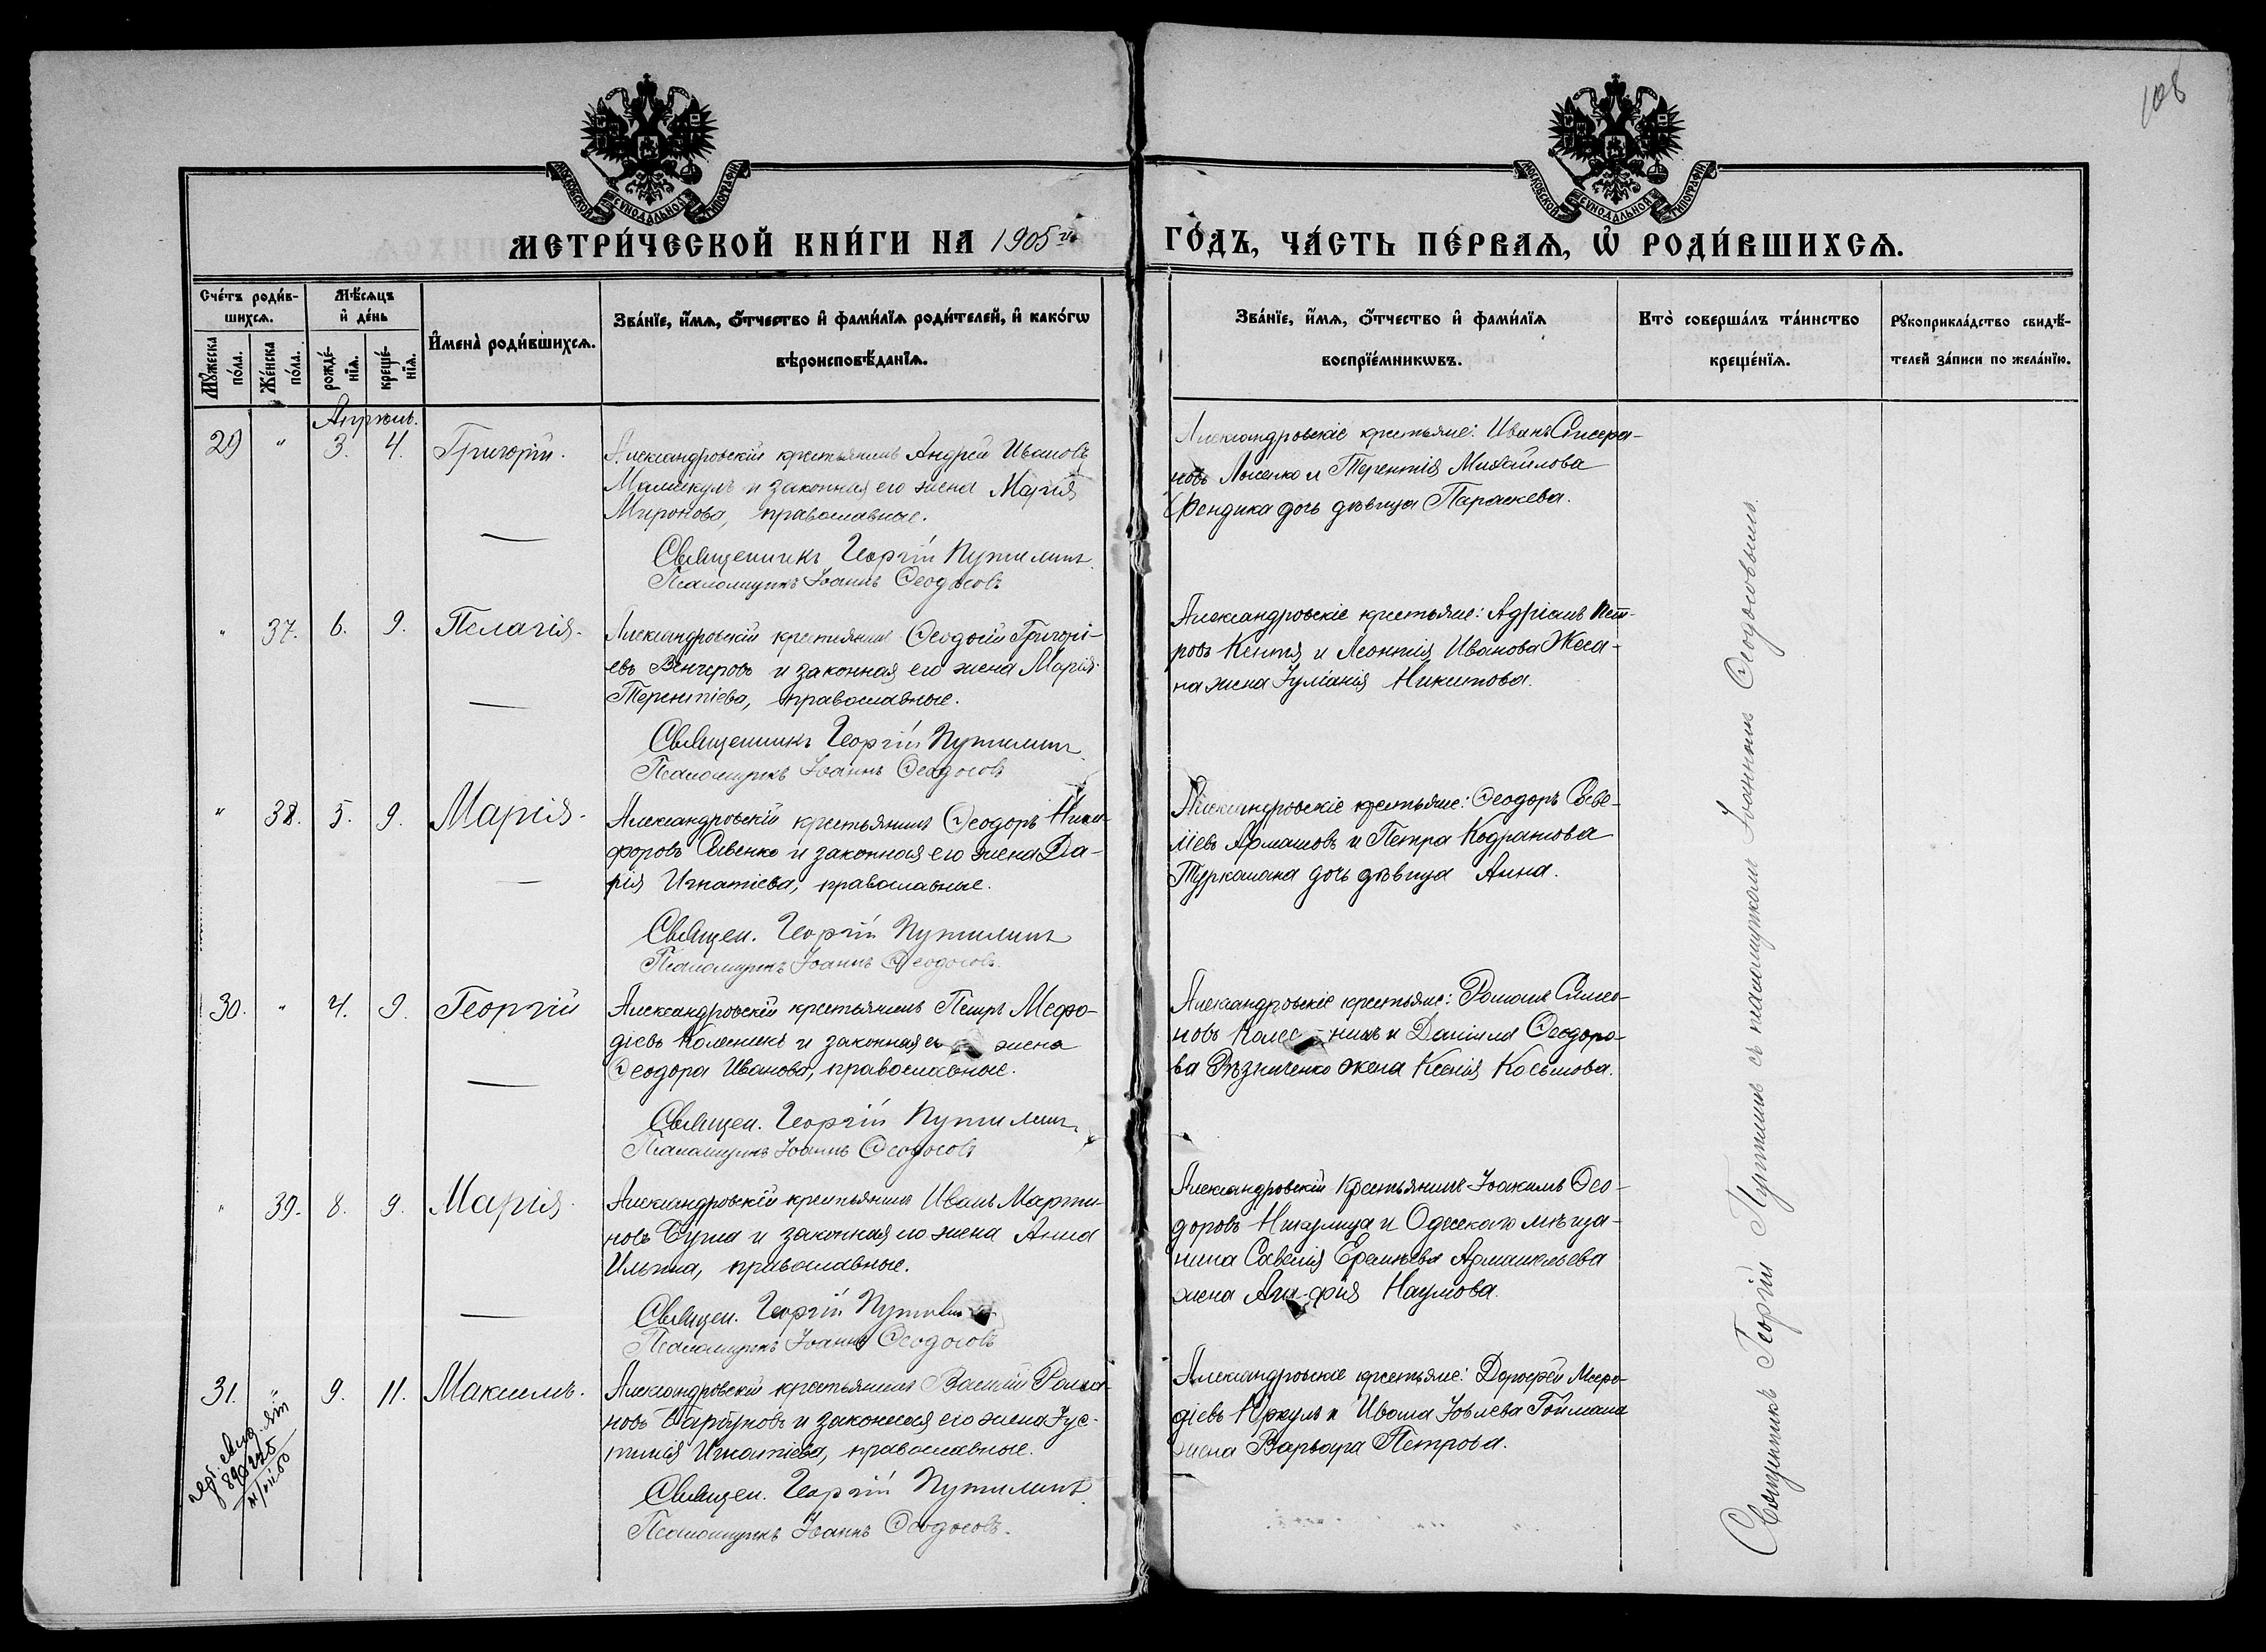 108
МОСКОВСКОЙ СѴНОДАЛЬНОЙ ТИПОГРАФІИ
МОСКОВСКОЙ СѴНОДАЛЬНОЙ ТИПОГРАФІИ
МЕТРИ́ЧЕСКОЙ КНИ́ГИ НА 1905 й ГО́ДЪ, ЧА́СТЬ ПЕ́РВАѦ, Ѽ РОДИ́ВШИХСѦ.
Сче́тъ роди́в-
шихсѧ.
Мѣ́сѧцъ
и҆ де́нь
Мꙋ́жеска
по́ла.
Же́нска
по́ла.
рожде́-
нїѧ.
креще́-
нїѧ.
И҆мена̀ роди́вшихсѧ.
Зва́нїе, и҆́мѧ, ѻ҆́тчество и҆ фами́лїѧ роди́телей, и҆ како́гѡ
вѣроисповѣ́данїѧ.
Зва́нїе, и҆́мѧ, ѻ҆́тчество и҆ фами́лїѧ
воспрїе́мникѡвъ.
Кто̀ соверша́лъ та́инство
креще́нїѧ.
Рꙋкоприкла́дство свидѣ́-
телей за́писи по жела́нїю.
Апрѣль.
29 " 3. 4. Григорій.
Александровскій крестьянинъ Андрей Ивановъ
Мамикулъ и законная его жена Марія
Миронова, православные.
Священникъ Георгій Путилинъ
Псаломщикъ Іоаннъ Ѳеодосовъ
Александровскіе крестьяне: Иванъ
новъ Лысенко и Терентія Михайлова
Фендика дочь дѣвица Параскева.
" 37. 6. 9. Пелагія.
Александровскій крестьянинъ Ѳеодосій Григорі-
евъ Венгеровъ и законная его жена Марія
Терентіева, православные.
Священникъ Георгій Путилинъ
Псаломщикъ Іоаннъ Ѳеодосовъ
Александровскіе крестьяне: Адріанъ Пет-
ровъ и Леонтія Иванова Жеса-
на жена Іуліанія Никитова.
" 38. 5. 9. Марія.
Александровскій крестьянинъ Ѳеодоръ Ники-
форовъ Савенко и законная его жена Да-
рія Игнатіева, православные.
Священ. Георгій Путилинъ
Псаломщикъ Іоаннъ Ѳеодосовъ
Александровскіе крестьяне: Ѳеодоръ Савве-
ліевъ Армашовъ и Петра Кодратова
Туркамана дочь дѣвица Анна.
30. " 4. 9. Георгій
Александровскій крестьянинъ Петръ Мефо-
діевъ и законная его жена
Ѳеодора Иванова, православные.
Священ. Георгій Путилинъ
Псаломщикъ Іоаннъ Ѳеодосовъ
Александровскіе крестьяне: Романъ Симео-
новъ и Даніила Ѳеодоро-
ва Рѣзниченко жена Ксенія Косьмова.
" 39. 8. 9. Марія
Александровскій крестьянинъ Иванъ Марти-
новъ и законная его жена Анна
Ильина, православные.
Священ. Георгій Путилинъ
Псаломщикъ Іоаннъ Ѳеодосовъ
Александровскій крестьянинъ Іоакимъ Ѳео-
доровъ Никулица и Одесскаго мѣща-
нина Савелія Еремѣева
жена Агафія Наумова.
31. " 9. 11. Максимъ.
Александровскій крестьянинъ Василій Рома-
новъ и законная его жена Іус-
тинія Игнатіева, православные.
Священ. Георгій Путилинъ
Псаломщикъ Іоаннъ Ѳеодосовъ.
Александровскіе крестьяне: Дорофей Мефо-
діевъ Юркулъ и Ивана Іовлева Гоймана
жена Варвара Петрова.
Священникъ Георгій Путилинъ съ псаломщикомъ Іоанномъ Ѳеодосовымъ.